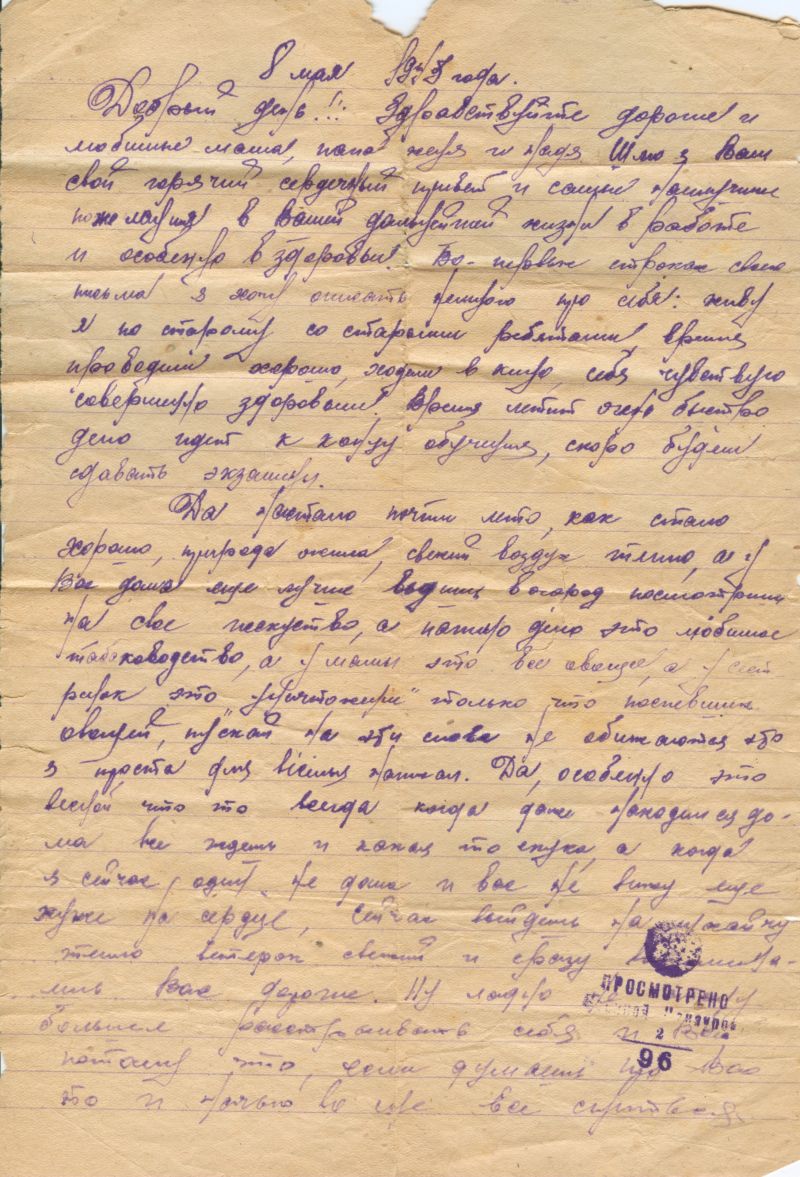 8 мая 1943 года.
Добрый день!!! Здравствуйте дорогие и
любимые мама, папа женя и надя Шлю я Вам
свой горячий сердечный привет и самые наилучшие
пожелания в Вашей дальнейшей жизни в работе
и особенно в здоровьи. Во-первых строках своего
письма я хочу описать немного про себя: живу
я по старому со старыми ребятами, время
проводим хорошо, ходим в кино, себя чувствую
совершенно здоровым. Время летит очень быстро
дело идет к концу обучения, скоро будем
сдавать экзамены.
Да настало почти лето, как стало
хорошо, природа ожила, свежий воздух тепло, а у
Вас дома еще лучше выдишь в огород посмотришь
на свое искуство, а папино дело это любимое
табаководство, а у мамы это все овощи, а у
это "уничтожить" только что поспевших
овощей, пускай на эти слова не обижаются это
я проста для веселья написал. Да, особенно это
весной что то всегда когда даже находишся до-
ма все ждешь и какая то скука, а когда
я сейчас один не дома и вас не вижу еще
хуже на сердце, сейчас выйдешь на лужайку
тепло ветерок свежий и сразу
Вас дорогие. Ну ладно
больше расстраивать себя и Вас
потому что, если думаешь про Вас
то и ночью во сне все снится.
ПРОСМОТРЕНО
Военной Цензурой
2
96